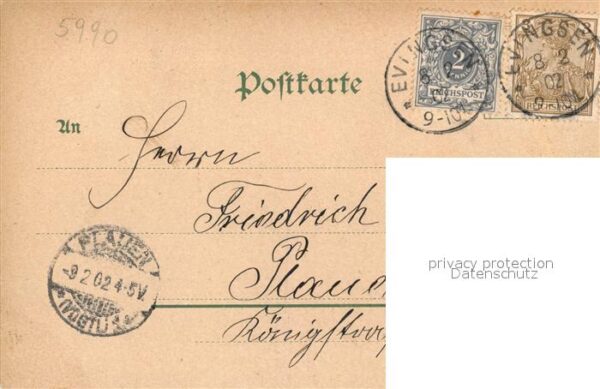 5990
2
REICHSPOST
EVINGSEN
8 2
02
9-10V.
EVINGSEN
8 2
02
Postkarte
An
Herrn
Friedrich
PLAUEN
-9.2.02.4-5V.
*(VOGTL)*
Königstra
privacy protection
Datenschutz